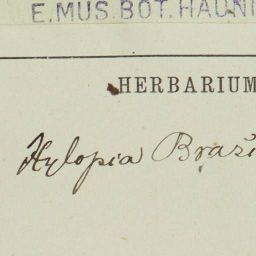 E.MUS.BOT.HAUNI
HERBARIUM
Hylopia Brasi